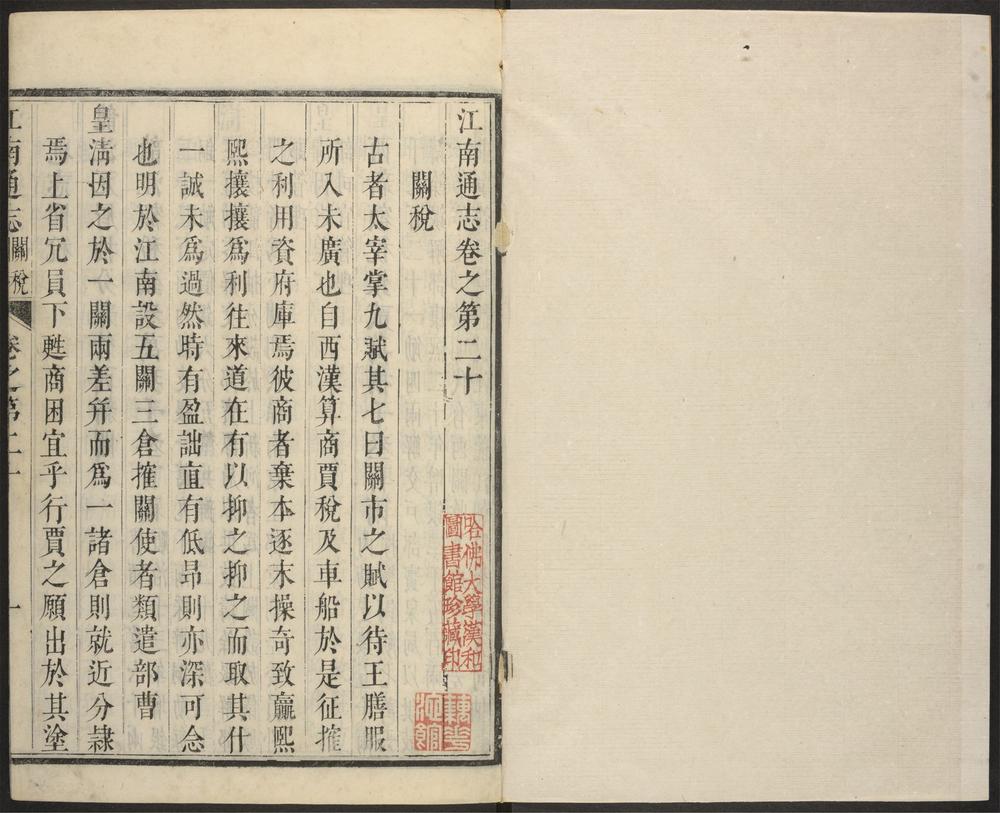 江南通志卷之第二十
關稅
古者太宰掌九賦其七曰關市之賦以待王膳服
所入未廣也自西漢算商賈稅及車船於是征搉
之利用資府庫焉彼商者棄本逐末操奇致贏熙
熙攘攘爲利往來道在有以抑之抑之而取其什
一誠未爲過然時有盈詘直有低昻則亦深可念
也明於江南設五關三倉搉關使者類遣部曹
皇淸因之於一關兩差并而爲一諸倉則就近分隷
焉上省冗員下甦商困宜乎行賈之願出於其塗
江南通志
關稅
卷之第二十
一
哈佛大學漢和
圖書館珍藏印